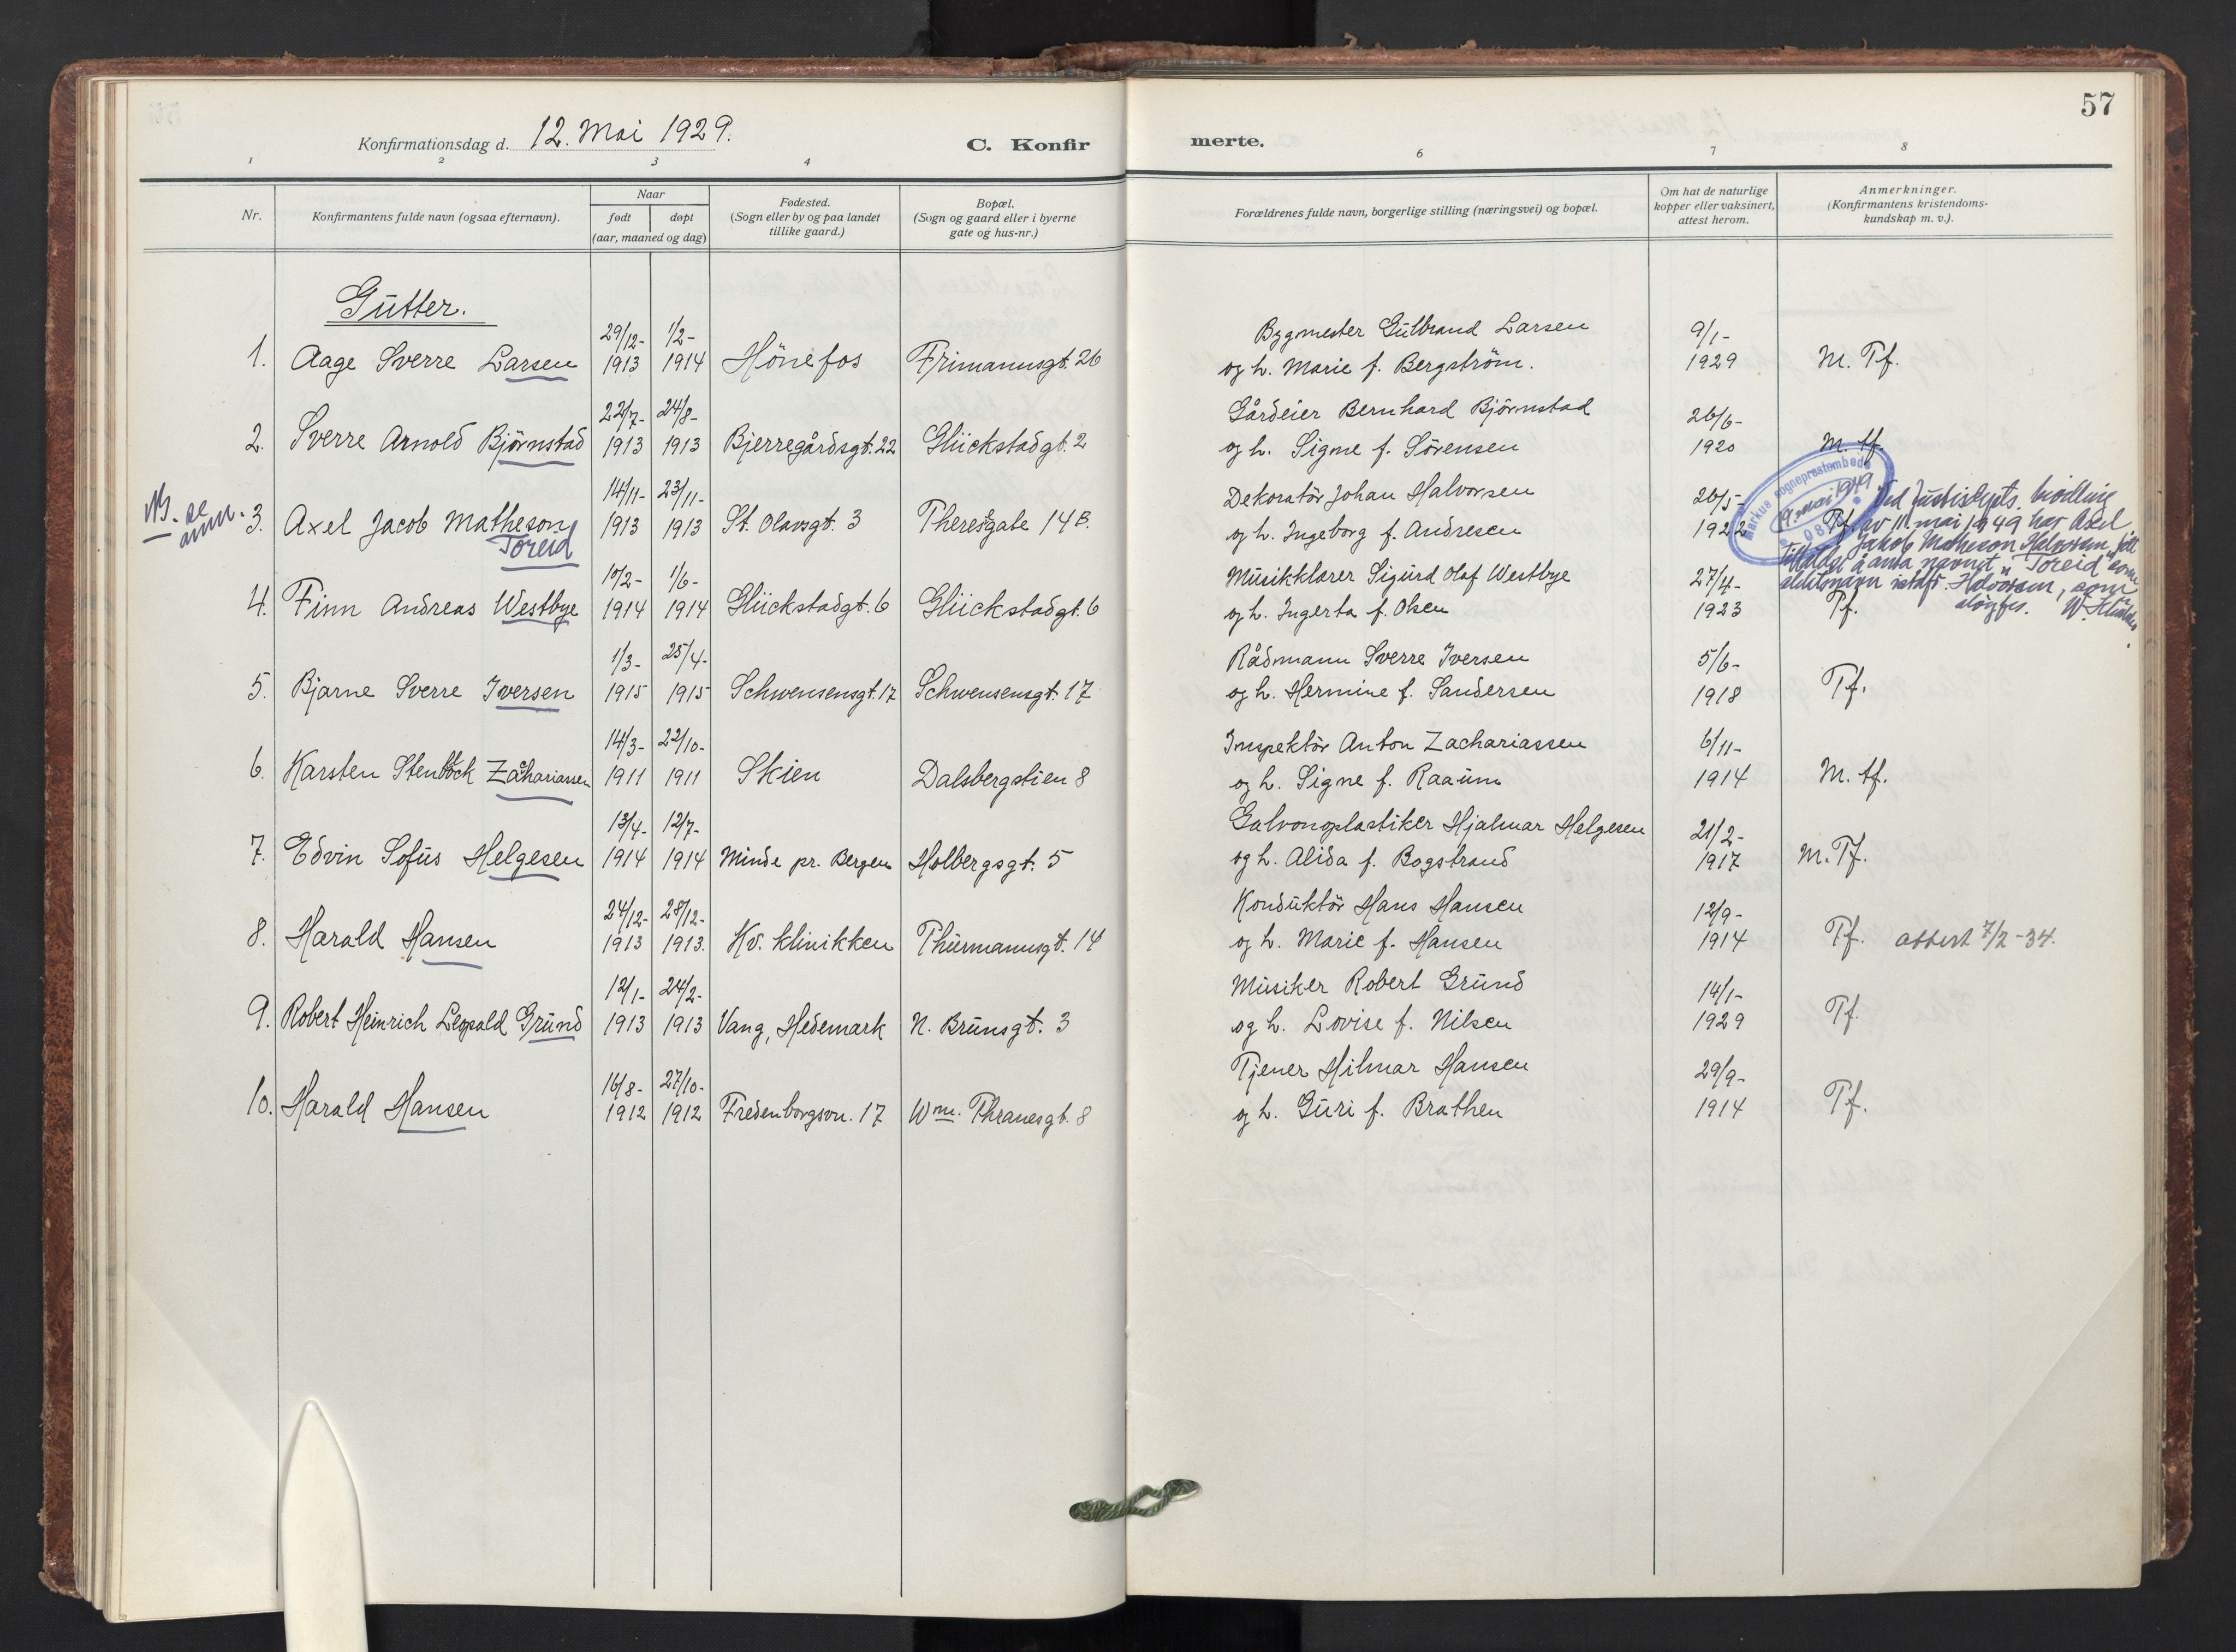 57
Konfirmationsdag d. 12. Mai 1929.
C. Konfirmerte.
1 2 3 4 6 7 8
Nr.
Konfirmantens fulde navn (ogsaa efternavn).
Naar
født
døpt
(aar, maaned og dag)
Fødested.
(Sogn eller by og paa landet
tillike gaard.)
Bopæl.
(Sogn og gaard eller i byerne
gate og hus-nr.)
Forældrenes fulde navn, borgerlige stilling (næringsvei) og bopæl.
Om hat de naturlige
kopper eller vaksinert,
attest herom.
Anmerkninger.
(Konfirmantens kristendoms-
kundskap m. v.).
Gutter.
29/12- 1/2- Bygmester Gulbrand Larsen 9/1-
1. Aage Sverre Larsen 1913 1914 Hönefos Frimannsgt. 26 og h. Marie f. Bergström. 1929 M. Tf.
22/7- 24/8- Gårdeier Bernhard Björnstad 26/6-
2. Sverre Arnold Björnstad 1913 1913 Bjerregårdsgt. 22 Glückstadgt. 2 og h. Signe f. Sörensen 1920 M. tf.
14/11- 23/11- Dekoratör Johan Halvorsen 26/5-
NB. se anm. 3. Axel Jacob Matheson 1913 1913 St. Olavsgt. 3 Theresgate 14 B. og h. Ingeborg f. Andresen 1922 Tf.
Toreid
Markus sogneprestembede
19. mai 1949
Ved Justisdepts. bevilling
av 11. mai 1949 har Axel
Jakob Matheson Halvorsen fått
tillatelse å anta navnet "Toreid" som
slektsnavn istedf. Halvorsen, som
sløyfes.
10/2- 1/6- Musikklærer Sigurd Olaf Westbye 27/4-
4. Finn Andreas Westbye 1914 1914 Glückstadgt. 6 Glückstadgt. 6 og h. Ingerta f. Olsen 1923 Tf.
1/3- 25/4- Rådmann Sverre Iversen 5/6-
5. Bjarne Sverre Iversen 1915 1915 Schwensensgt. 17 Schwensensgt. 17 og h. Hermine f. Sandersen 1918 Tf.
14/3- 22/10- Inspektör Anton Zachariassen 6/11-
6. Karsten Stenbock Zachariassen 1911 1911 Skien Dalsbergstien 8 og h. Signe f. Raaum 1914 M. tf.
13/4- 12/7- Galvonoplastiker Hjalmar Helgesen 21/2-
7. Edvin Sofus Helgesen 1914 1914 Minde pr. Bergen Holbergsgt. 5 og h. Alida f. Bogstrand 1917 M. Tf.
24/12- 28/12- Konduktör Hans Hansen 12/9-
8. Harald Hansen 1913 1913. Kv. klinikken Thurmannsgt. 14 og h. Marie f. Hansen 1914 Tf. attest 7/2-34.
12/1- 24/2- Musiker Robert Grund 14/1-
9. Robert Heinrich Leopold Grund 1913 1913 Vang, Hedemark N. Brunsgt. 3 og h. Lovise f. Nilsen 1929 Tf.
16/8- 27/10- Tjener Hilmar Hansen 29/9-
10. Harald Hansen 1912 1912 Fredenborgsvn. 17 Wm. Thranesgt. 8 og h. Guri f. Brathen 1914 Tf.